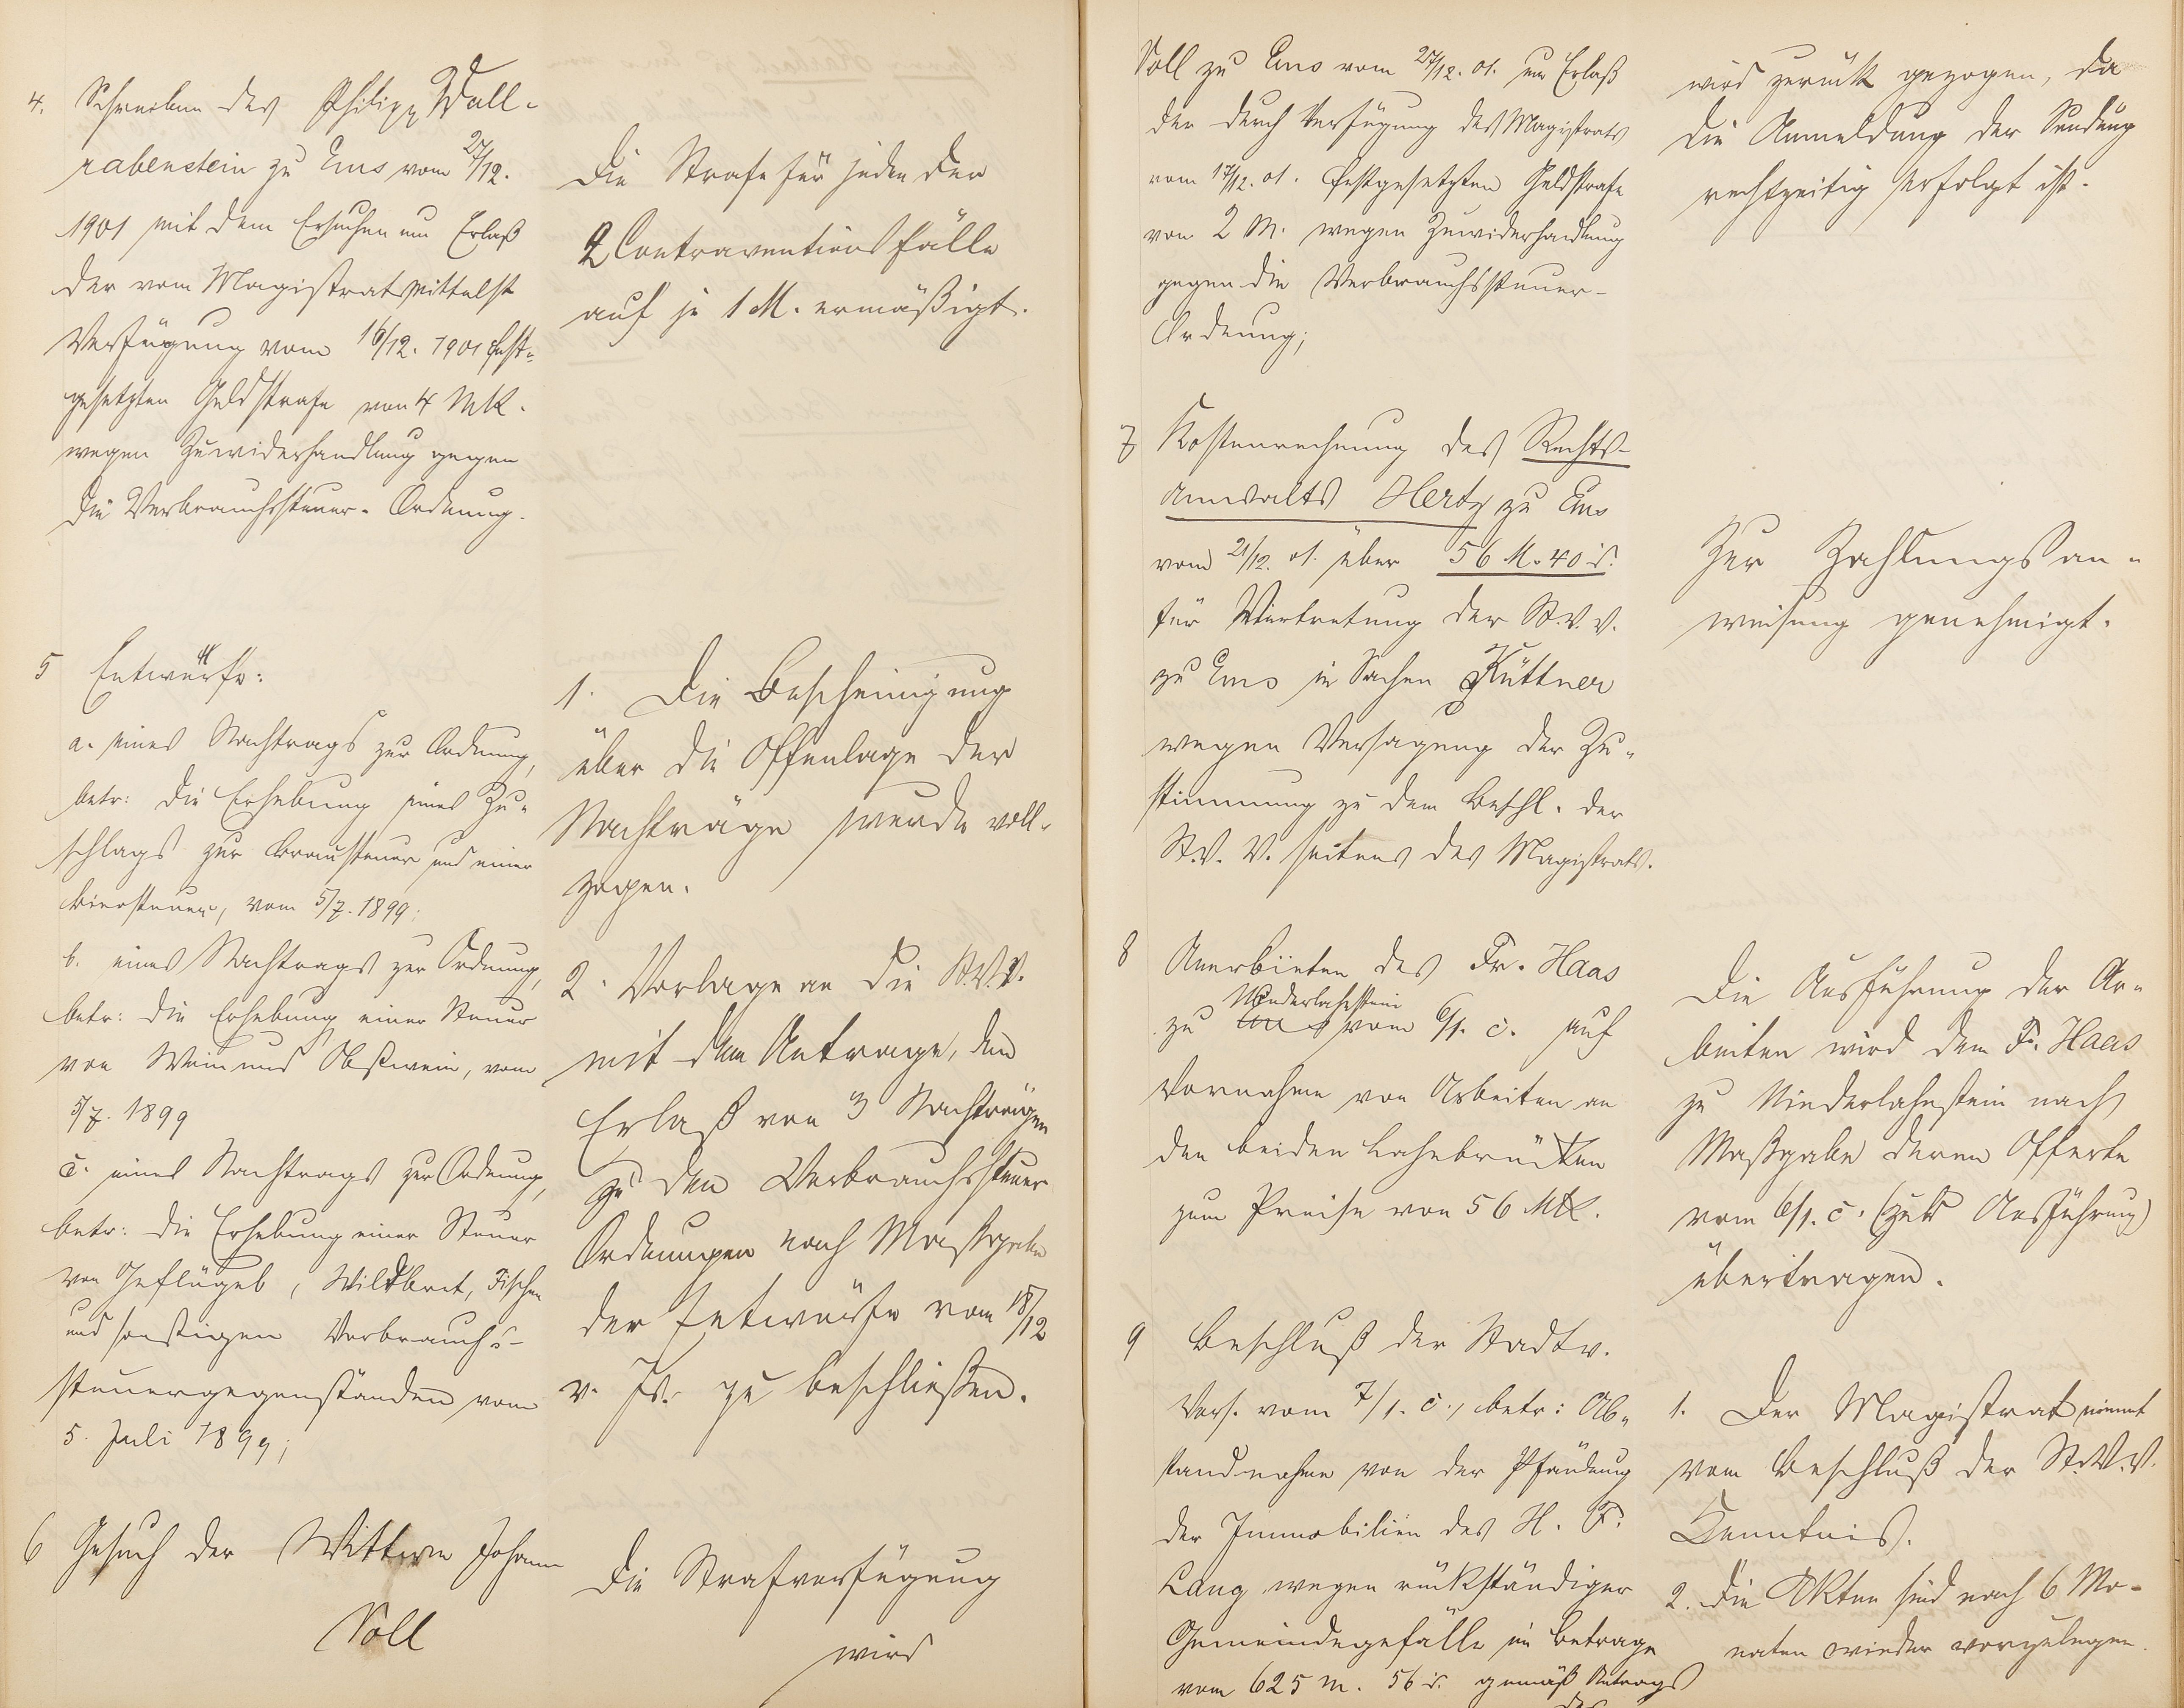 4. Schreiben des Philipp Wall-
rabenstein zu Ems vom 27/12.
1901 mit dem Ersuchen um Erlaß
der vom Magistrat mittelst
Verfügung vom 16/12. 1901 fest-
gesetzten Geldstrafe von 4 Mk.
wegen Zuwiderhandlung gegen
die Verbrauchssteuer-Ordnung.
Die Strafe für jeden der
2 Contraventionsfälle
auf je 1 M. ermäßigt.
5 Entwürfe:
a. eines Nachtrags zur Ordnung,
betr: die Erhebung eines Zu-
schlags zur Brausteuer und einer
Biersteuer, vom 5/7. 1899;
b. eines Nachtrags zur Ordnung,
betr: die Erhebung einer Steuer
von Wein und Obstwein, vom
5/7. 1899
c. eines Nachtrags zur Ordnung,
betr: die Erhebung einer Steuer
von Geflügel, Wildbret, Fischen
und sonstigen Verbrauchs-
steuergegenständen vom
5. Juli 1899;
1. Die Bescheinigung
über die Offenlage der
Nachträge wurde voll-
zogen.
2. Vorlage an die St.V.V.
mit dem Antrage, den
Erlaß von 3 Nachträgen
zu den Verbrauchssteuer
Ordnungen nach Maßgabe
der Entwürfe vom 18/12
v. Js. zu beschließen.
6 Gesuch der Wittwe Johann
Soll
Die Strafverfügung
wird
Soll zu Ems vom 27/12. 01. um Erlaß
der durch Verfügung des Magistrats
vom 17/12. 01. festgesetzten Geldstrafe
von 2 M. wegen Zuwiderhandlung
gegen die Verbrauchssteuer-
Ordnung;
wird zurück gezogen, da
die Anmeldung der Sendung
rechtzeitig erfolgt ist.
7 Kostenrechnung des Rechts-
anwalts Hertz zu Ems
vom 21/12. 01. über 56 M. 40 d.
für Vertretung der St.V.V.
zu Ems in Sachen Küttner
wegen Versagung der Zu-
stimmung zu dem Beschl. der
St.V.V. seitens des Magistrats.
Zur Zahlungsan-
weisung genehmigt.
8 Anerbieten des Fr. Haas
Niederlahnstein
zu Ems vom 6/1. c. auf
Vornahme von Arbeiten an
den beiden Lahnbrücken
zum Preise von 56 Mk.
Die Ausführung der Ar-
beiten wird dem Fr. Haas
zu Niederlahnstein nach
Maßgabe deren Offerte
vom 6/1. c. (zur Ausführung)
übertragen.
9 Beschluß der Stadtv.
Vers. vom 7/1. c., betr: Ab-
standnahme von der Pfändung
der Immobilien des H. F.
Lang wegen rückständiger
Gemeindegefälle im Betrage
vom 625 M. 56 d. gemäß Antrags
des
1. Der Magistrat nimmt
vom Beschluß der St.V.V.
Kenntnis.
2. Die Akten sind nach 6 Mo-
naten wieder vorzulegen.